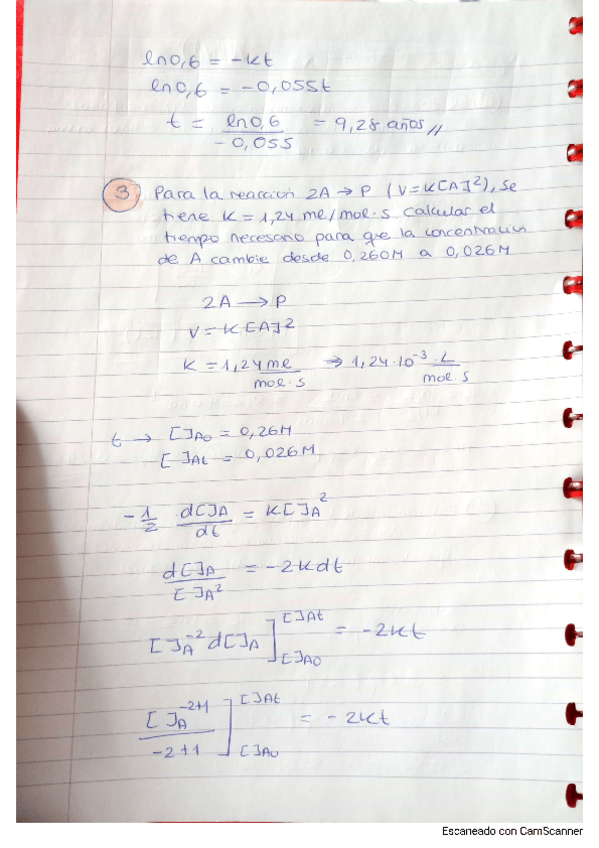 ln0,6 = -kt
ln0,6 = -0,055t
t = ln0,6 / -0,055 = 9,28 años //
3 Para la reaccion 2A → P (V=K[A]²), se
tiene K = 1,24 ml/mol·s calcular el
tiempo necesario para que la concentracion
de A cambie desde 0,260M a 0,026M
2A → P
V = K[A]²
K = 1,24 ml / mol·s → 1,24·10⁻³ · L / mol·s
t → [ ]A0 = 0,26M
[ ]At = 0,026M
-1/2 d[ ]A / dt = K[ ]A²
d[ ]A / [ ]A² = -2kdt
[ ]A⁻² d[ ]A ] [ ]At [ ]A0 = -2kt
[ ]A⁻²⁺¹ / -2+1 ] [ ]At [ ]A0 = -2kt
Escaneado con CamScanner